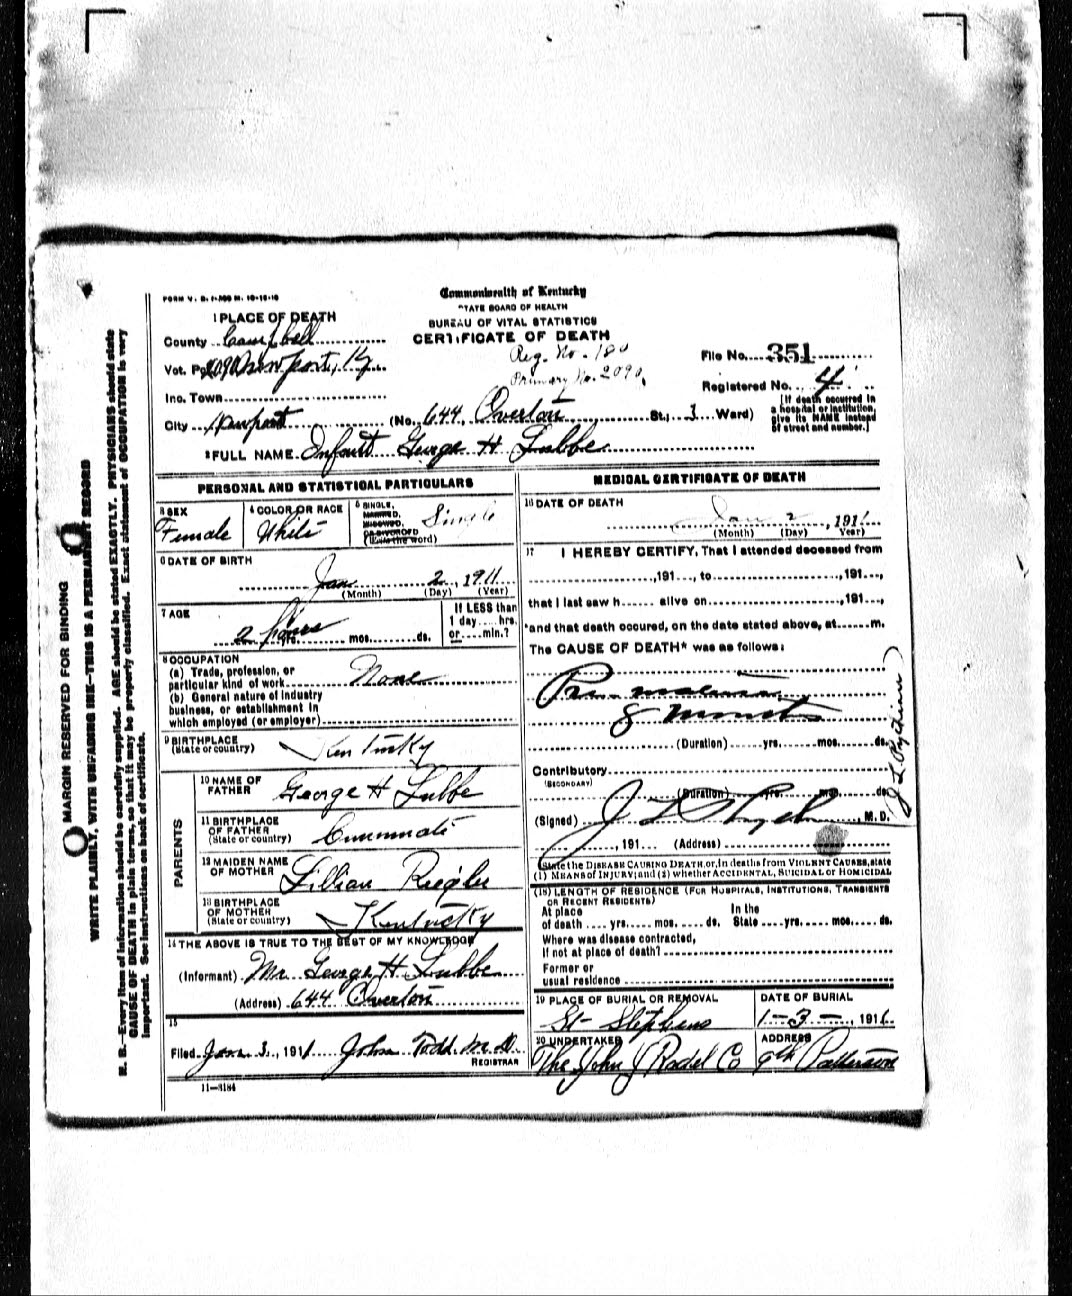 FORM V. S. 1-200 M. 10-15-10
Commonwealth of Kentucky
STATE BOARD OF HEALTH
BUREAU OF VITAL STATISTICS
CERTIFICATE OF DEATH
Reg. No. 180
Primary No. 2090
File No. 351
Registered No. 4
[If death occurred in a hospital or institution, give its NAME instead of street and number.]
1 PLACE OF DEATH
County Campbell
Vot. Pct. 2090 Newport, Ky
Inc. Town
City Newport (No. 644 Overton St.; 3 Ward)
2 FULL NAME Infant George H Lubbe
PERSONAL AND STATISTICAL PARTICULARS
3 SEX Female
4 COLOR OR RACE White
5 SINGLE, MARRIED, WIDOWED, OR DIVORCED (Write the word) Single
6 DATE OF BIRTH
Jan 2, 1911
(Month) (Day) (Year)
7 AGE
2 hours yrs. mos. ds.
If LESS than 1 day hrs. or min.?
8 OCCUPATION
(a) Trade, profession, or
particular kind of work None
(b) General nature of industry
business, or establishment in
which employed (or employer)
9 BIRTHPLACE
(State or country) Kentucky
PARENTS
10 NAME OF FATHER George H Lubbe
11 BIRTHPLACE OF FATHER (State or country) Cincinnati
12 MAIDEN NAME OF MOTHER Lillian Riegler
13 BIRTHPLACE OF MOTHER (State or country) Kentucky
14 THE ABOVE IS TRUE TO THE BEST OF MY KNOWLEDGE
(Informant) Mr. George H Lubbe
(Address) 644 Overton
15
Filed Jan. 3, 1911 John Todd M.D.
REGISTRAR
11—3184
MEDICAL CERTIFICATE OF DEATH
16 DATE OF DEATH
Jan 2, 1911
(Month) (Day) (Year)
17 I HEREBY CERTIFY, That I attended deceased from
, 191 , to , 191 ,
that I last saw h alive on , 191 ,
and that death occured, on the date stated above, at m.
The CAUSE OF DEATH* was as follows:
Premature
8 months
(Duration) yrs. mos. ds.
Contributory
(SECONDARY)
(Duration) yrs. mos. ds.
(Signed) J L M.D.
, 191 (Address)
*State the DISEASE CAUSING DEATH, or, in deaths from VIOLENT CAUSES, state
(1) MEANS OF INJURY; and (2) whether ACCIDENTAL, SUICIDAL or HOMICIDAL
(18) LENGTH OF RESIDENCE (FOR HOSPITALS, INSTITUTIONS, TRANSIENTS
OR RECENT RESIDENTS)
At place of death yrs. mos. ds. In the State yrs. mos. ds.
Where was disease contracted,
if not at place of death?
Former or
usual residence
19 PLACE OF BURIAL OR REMOVAL
St Stephens
DATE OF BURIAL
1-3-, 1911
20 UNDERTAKER
The John J Radel Co
ADDRESS
9th Patterson
MARGIN RESERVED FOR BINDING
WRITE PLAINLY, WITH UNFADING INK—THIS IS A PERMANENT RECORD
N. B.—Every item of information should be carefully supplied. AGE should be stated EXACTLY. PHYSICIANS should state
CAUSE OF DEATH in plain terms, so that it may be properly classified. Exact statement of OCCUPATION is very
important. See instructions on back of certificate.